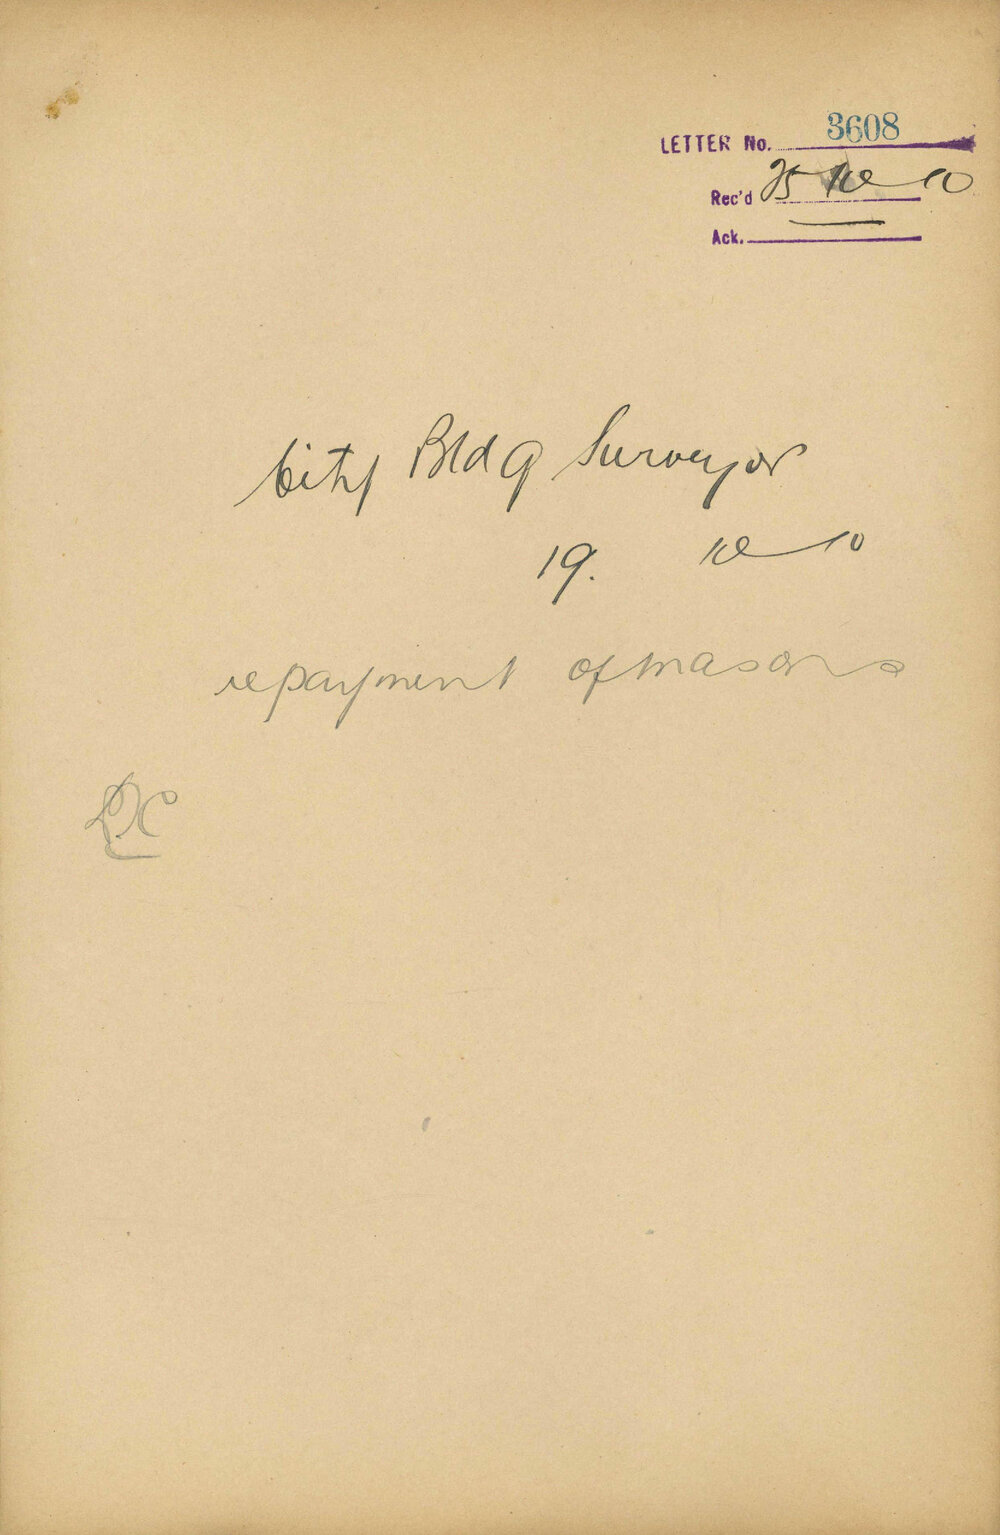 LETTER No. 3608
Rec'd 25 10 10
Ack.
City Bldg Surveyor
19. 10 10
re payment of masons